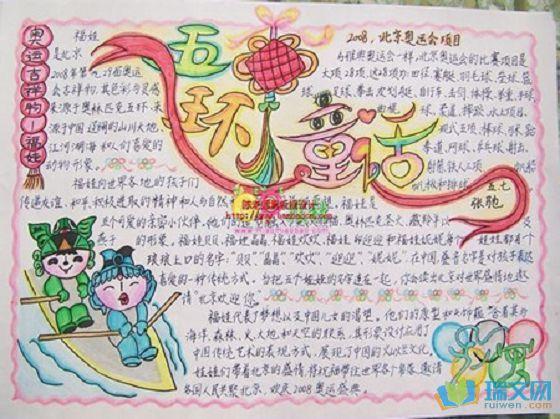 奥运吉祥物—福娃
五环童话
福娃
是北京
2008年第九29届奥运
会吉祥物,其色彩与灵感
来源于奥林匹克五环,来
源于中国辽阔的山川大地、
江河湖海和人们喜爱的
动物形象。
福娃向世界各地的孩子们
传递友谊、和平、积极进取的精神和人与自然
福娃是
五个可爱的亲密小伙伴,他们的
燕子的形象。福娃贝贝、福娃晶晶、福娃欢欢、福娃迎迎和福娃妮妮
娃娃都有个
琅琅上口的名字:“贝贝”“晶晶”“欢欢”“迎迎”“妮妮”,在中国,叠音名字是对孩子表达
喜爱的一种传统方式,当把五个娃娃的名字连在一起,你会读出北京对世界盛情地邀
请“北京欢迎您”。
福娃代表了梦想以及中国人民的渴望。他们的原型和头饰蕴含着其与
海洋、森林、火、大地和天空的联系,其形象设计应用了
中国传统艺术的表现方式,展现了中国的灿烂文化。
娃娃们带着北京的盛情,将祝福带往世界各个角落,邀请
各国人民共聚北京,欢庆2008奥运盛典。
2008,北京奥运会项目
与雅典奥运会一样,北京奥运会的比赛项目是
大项28项,这28项为:田径、赛艇、羽毛球、垒球、篮
球、足球、拳击、皮划艇、自行车、击剑、体操、举重、手球、
曲棍球、柔道、摔跤、水上项目、
现代五项、棒球、马术、跆
拳道、网球、乒乓球、射击、
射箭、铁人三项、帆船
帆板和排球
五七
张驰
瑞文网
ruiwen.com